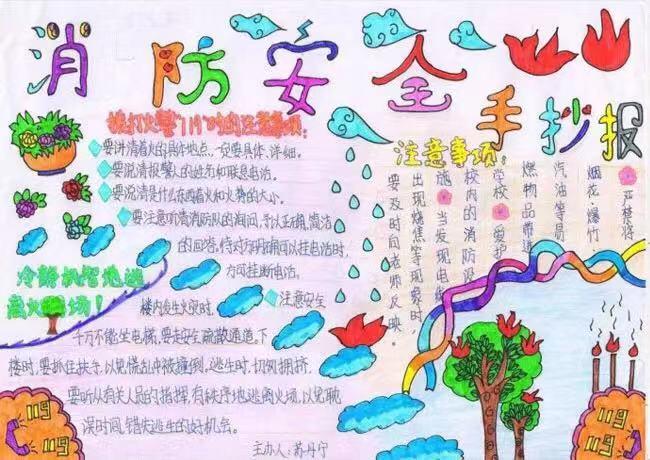 消防安全手抄报
拨打火警"119"时的注意事项:
要讲清着火的具体地点,一定要具体、详细。
要说清报警人的姓名和联系电话。
要说清是什么东西着火和火势的大小。
要注意听清消防队的询问,予以正确,简洁
的回答,待对方明确可以挂电话时,
方可挂断电话。
冷静机智地逃
离火场!
注意安全
楼内发生火灾时,
千万不能坐电梯,要走安全疏散通道。下
楼时,要抓住扶手,以免慌乱中被撞倒。逃生时,切勿拥挤,
要听从有关人员的指挥,有秩序地逃离火场,以免耽
误时间,错失逃生的好机会。
主办人:苏丹宁
注意事项:
严禁将
烟花、爆竹
汽油等易
燃物品带进
学校。爱护
校内的消防设
施。当发现电线
出现烧焦等现象时,
要及时向老师反映。
119
119
119
119